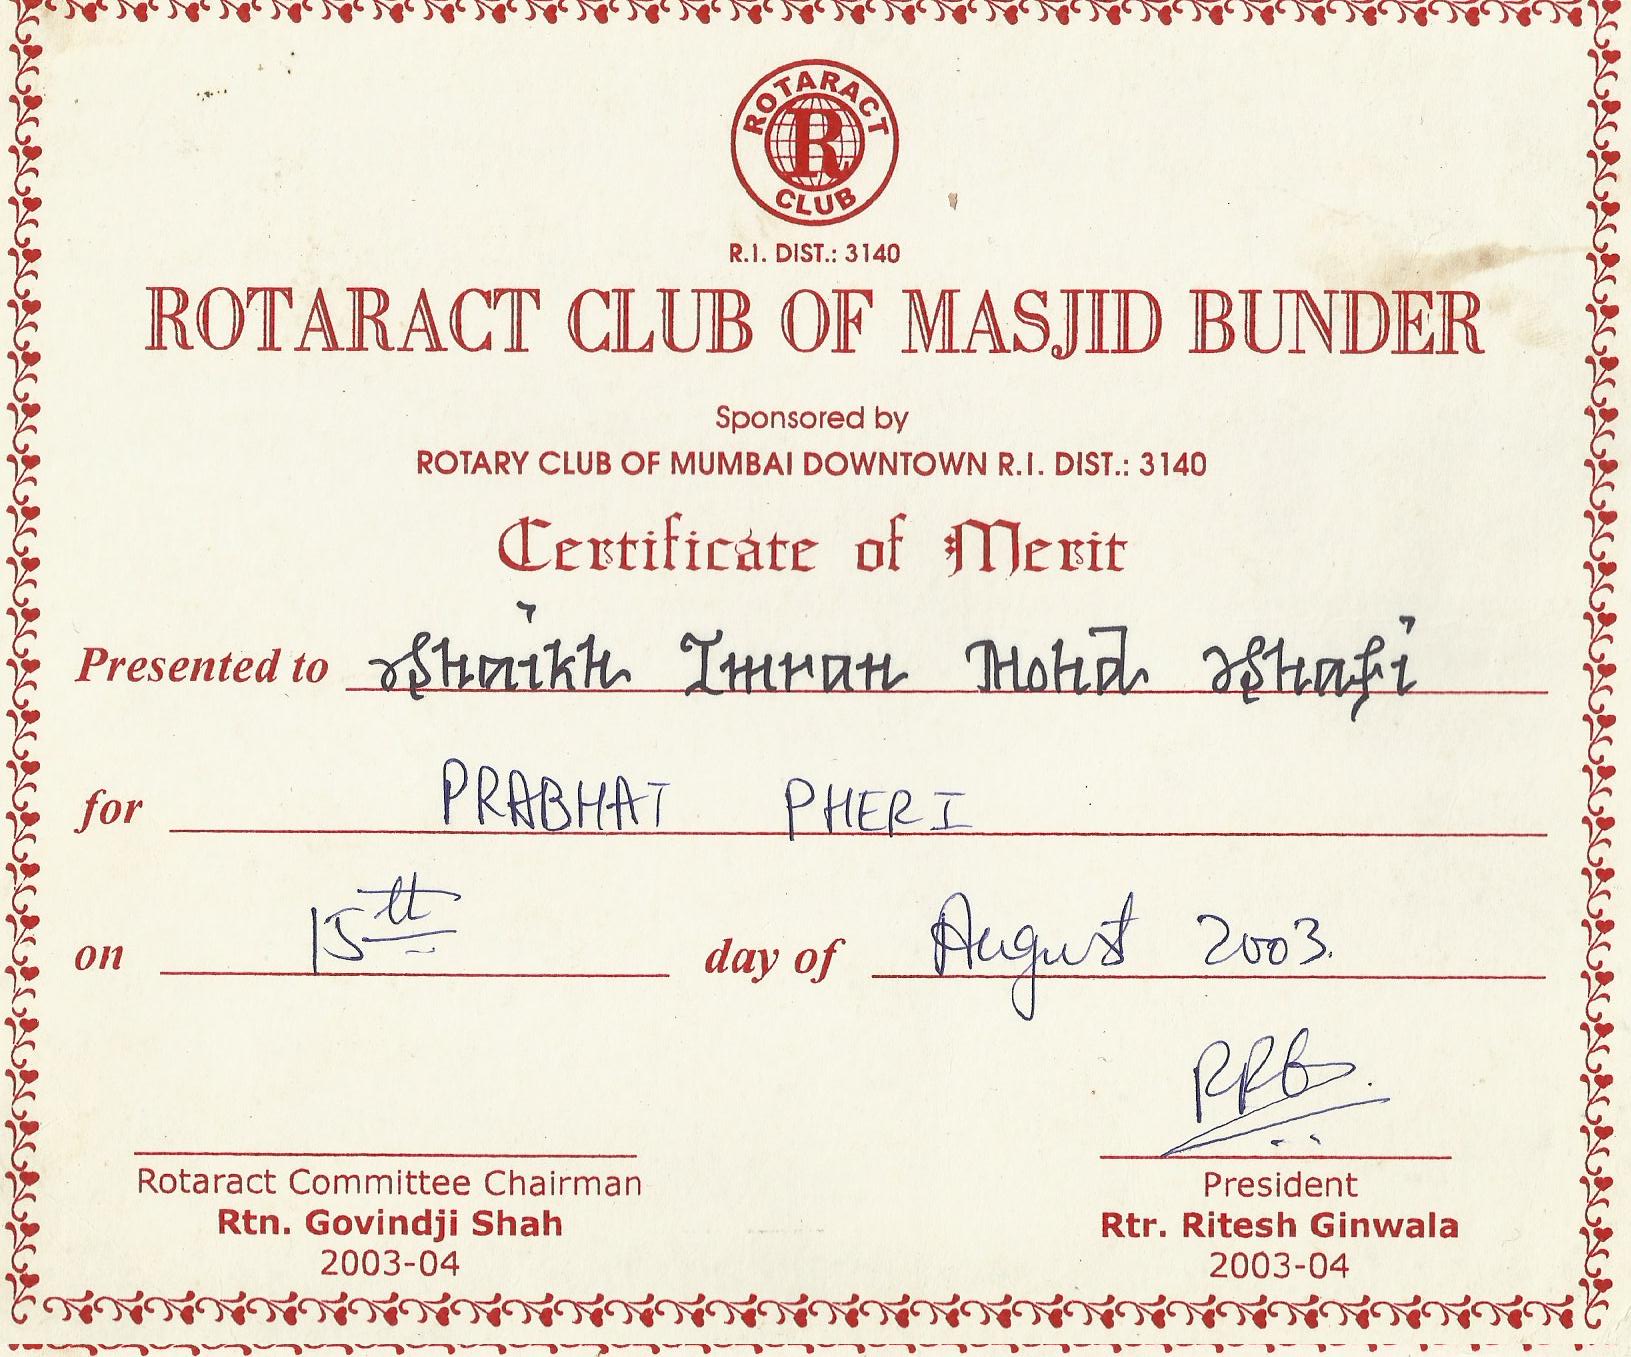 ROTARACT CLUB
R
R.I. DIST.: 3140
ROTARACT CLUB OF MASJID BUNDER
Sponsored by
ROTARY CLUB OF MUMBAI DOWNTOWN R.I. DIST.: 3140
Certificate of Merit
Presented to Shaikh Imran Mohd Shafi
for PRABHAT PHERI
on 15th day of August 2003.
Rotaract Committee Chairman President
Rtn. Govindji Shah Rtr. Ritesh Ginwala
2003-04 2003-04